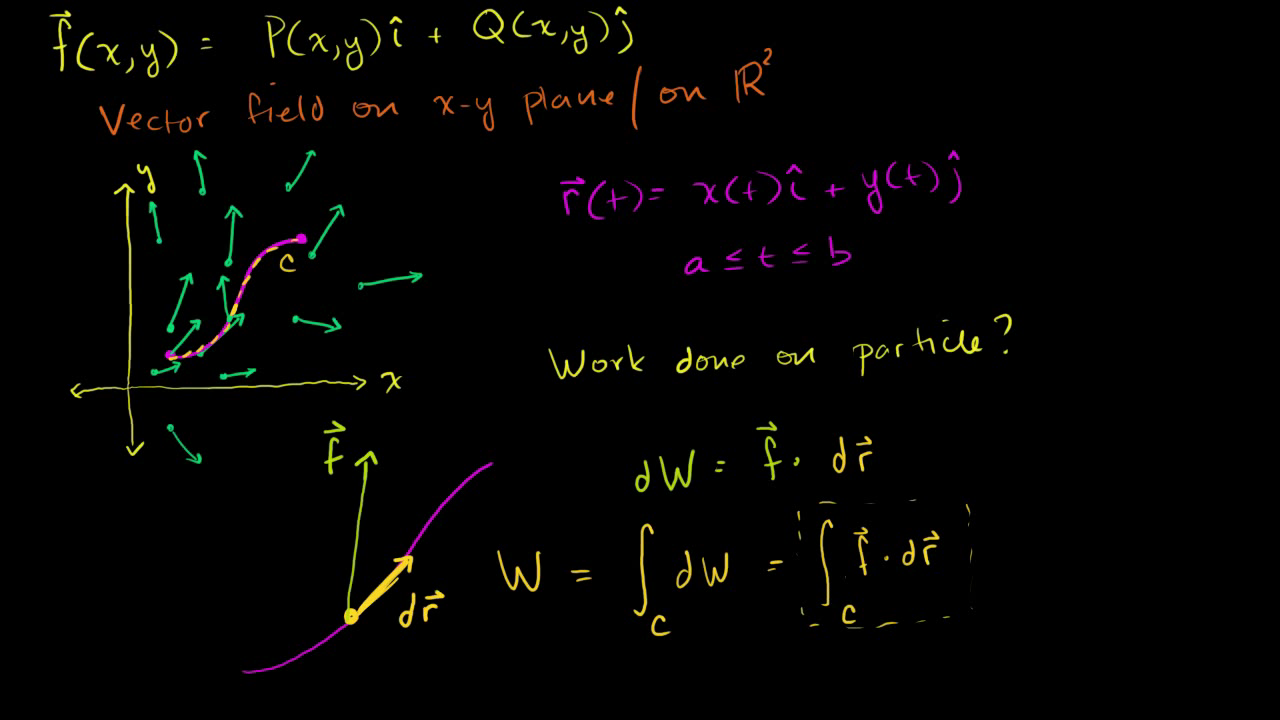 f⃗(x,y) = P(x,y)î + Q(x,y)ĵ
Vector field on x-y plane / on ℝ²
y
C
x
r⃗(t) = x(t)î + y(t)ĵ
a ≤ t ≤ b
Work done on particle?
f⃗
dr⃗
dW = f⃗ · dr⃗
W = ∫_C dW = ∫_C f⃗ · dr⃗